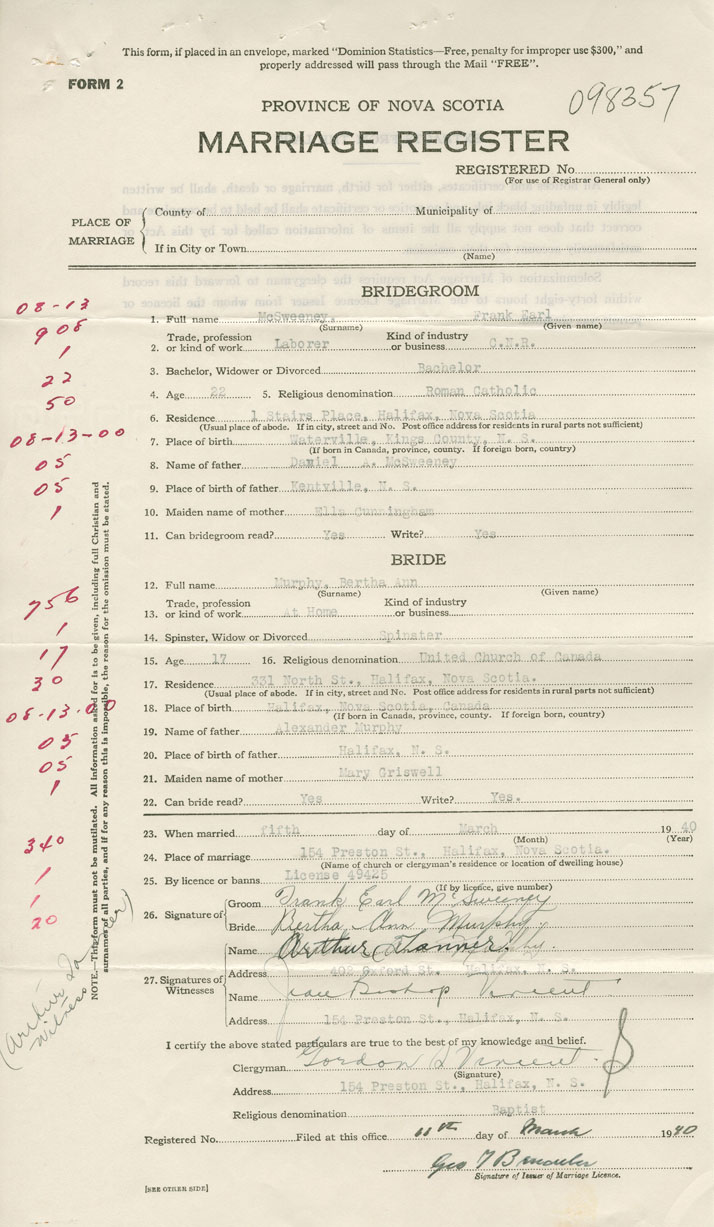 This form, if placed in an envelope, marked "Dominion Statistics—Free, penalty for improper use $300," and
properly addressed will pass through the Mail "FREE".
FORM 2
098357
PROVINCE OF NOVA SCOTIA
MARRIAGE REGISTER
REGISTERED No.
(For use of Registrar General only)
PLACE OF MARRIAGE
County of Municipality of
If in City or Town
(Name)
BRIDEGROOM
08-13
1. Full name McSweeney, Frank Earl
(Surname) (Given name)
908
2. Trade, profession or kind of work Laborer Kind of industry or business C.N.R.
1
3. Bachelor, Widower or Divorced Bachelor
22
4. Age 22 5. Religious denomination Roman Catholic
50
6. Residence 1 Stairs Place, Halifax, Nova Scotia
(Usual place of abode. If in city, street and No. Post office address for residents in rural parts not sufficient)
08-13-00
7. Place of birth Waterville, Kings County, N. S.
(If born in Canada, province, county. If foreign born, country)
05
8. Name of father Daniel A. McSweeney
05
9. Place of birth of father Kentville, N. S.
1
10. Maiden name of mother Ella Cunningham
11. Can bridegroom read? Yes Write? Yes
BRIDE
12. Full name Murphy, Bertha Ann
(Surname) (Given name)
756
13. Trade, profession or kind of work At Home Kind of industry or business
1
14. Spinster, Widow or Divorced Spinster
17
15. Age 17 16. Religious denomination United Church of Canada
30
17. Residence 331 North St., Halifax, Nova Scotia.
(Usual place of abode. If in city, street and No. Post office address for residents in rural parts not sufficient)
08-13-00
18. Place of birth Halifax, Nova Scotia, Canada
(If born in Canada, province, county. If foreign born, country)
05
19. Name of father Alexander Murphy
05
20. Place of birth of father Halifax, N. S.
1
21. Maiden name of mother Mary Griswell
22. Can bride read? Yes Write? Yes.
23. When married fifth day of March 1940
(Month) (Year)
340
24. Place of marriage 154 Preston St., Halifax, Nova Scotia.
(Name of church or clergyman's residence or location of dwelling house)
1
25. By licence or banns License 49425
(If by licence, give number)
1
20
26. Signature of
Groom Frank Earl McSweeney
Bride Bertha Ann Murphy
27. Signatures of Witnesses
Name Arthur Tanner
Address 402 Oxford St. Halifax, N. S.
Name Jean Bishop Vincent
Address 154 Preston St., Halifax, N. S.
I certify the above stated particulars are true to the best of my knowledge and belief.
Clergyman Gordon S Vincent
(Signature)
Address 154 Preston St., Halifax, N. S.
Religious denomination Baptist
Registered No. Filed at this office 11th day of March 1940
Geo T
Signature of Issuer of Marriage Licence.
[SEE OTHER SIDE]
NOTE.—This form must not be mutilated. All information asked for is to be given, including full Christian and
surnames of all parties, and if for any reason this is impossible, the reason for the omission must be stated.
(Arthur
Witness